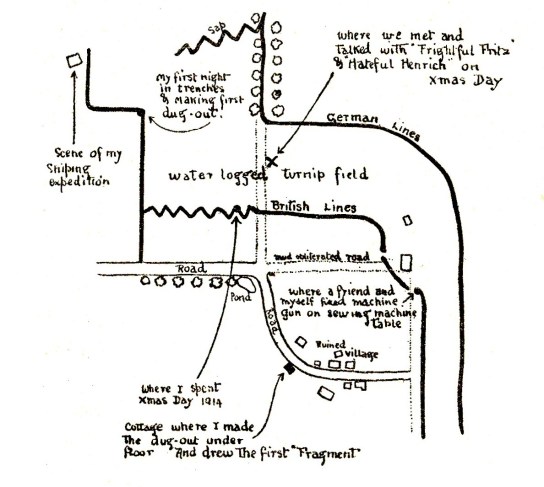 Sap
where we met and
Talked with "Frightful Fritz"
& "Hateful Henrich" on
Xmas Day
my first night
in trenches
& making first
dug-out!
German Lines
Scene of my
Sniping
expedition
water logged turnip field
British Lines
mud obliterated road
Road
Pond
where a friend and
myself fixed machine
gun on sewing machine
Table
Road
Ruined
village
where I spent
Xmas Day 1914
Cottage where I made
The dug-out under
floor And drew The first "Fragment"